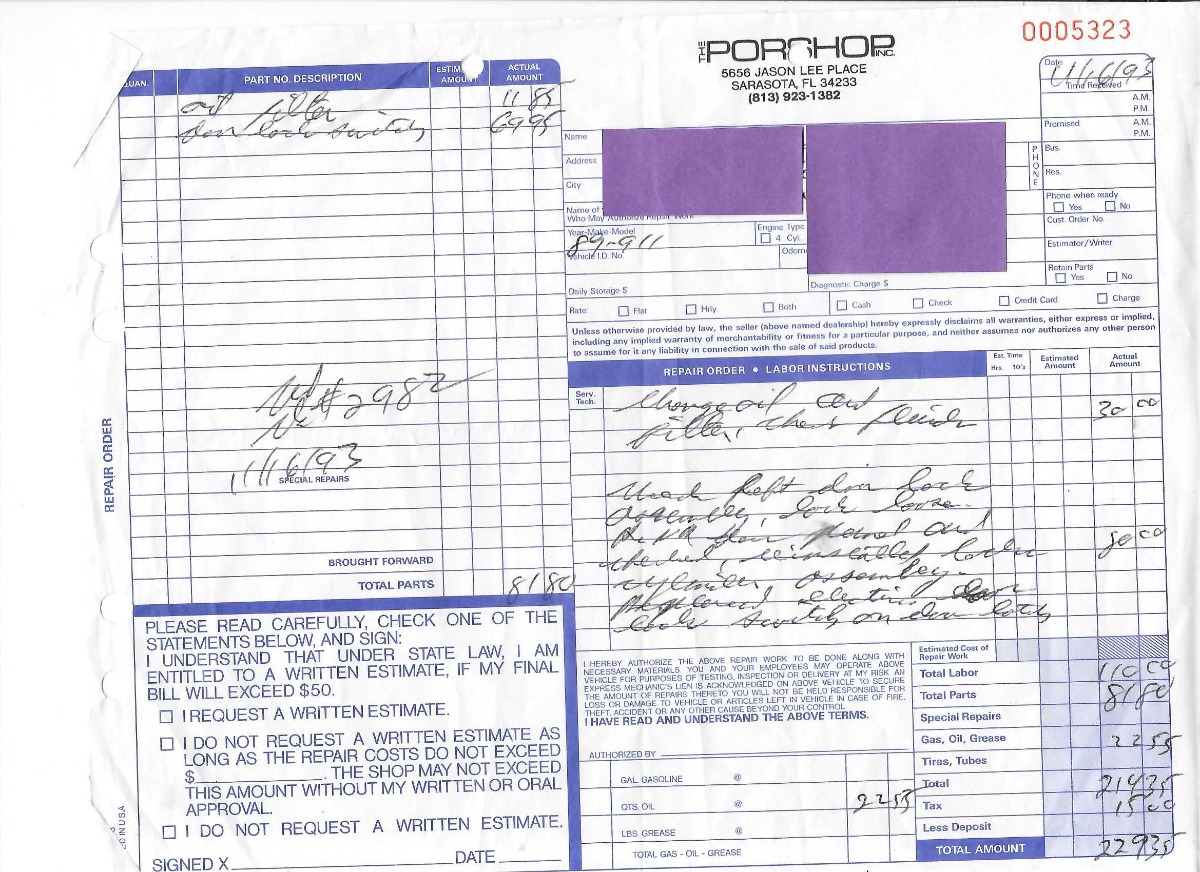 0005323
THE PORSHOP INC.
5656 JASON LEE PLACE
SARASOTA, FL 34233
(813) 923-1382
Date
11/16/93
Time Received
A.M.
P.M.
Promised
A.M.
P.M.
QUAN. PART NO. DESCRIPTION ESTIM AMOUNT ACTUAL AMOUNT
oil filter 11 85
door lock switch 69 95
ck# 2982
11/16/93
SPECIAL REPAIRS
BROUGHT FORWARD
TOTAL PARTS 81 80
REPAIR ORDER
Name
Address
City
Name of
Who May Authorize Repair Work
Year-Make-Model
89-911
Vehicle I.D. No.
Engine Type
4 Cyl.
Odom
PHONE
Bus.
Res.
Phone when ready
Yes No
Cust. Order No.
Estimator/Writer
Retain Parts
Yes No
Daily Storage $ Diagnostic Charge $
Rate: Flat Hrly Both Cash Check Credit Card Charge
Unless otherwise provided by law, the seller (above named dealership) hereby expressly disclaims all warranties, either express or implied,
including any implied warranty of merchantability or fitness for a particular purpose, and neither assumes nor authorizes any other person
to assume for it any liability in connection with the sale of said products.
REPAIR ORDER • LABOR INSTRUCTIONS Est. Time Hrs. 10's Estimated Amount Actual Amount
Serv. Tech.
Change oil and 30 00
filter, check fluids
left door lock
assembly, lock loose.
R&R door panel and
checked, reinstalled lock 80 00
cylinder assembly.
Replaced electric door
lock switch on door latch
PLEASE READ CAREFULLY, CHECK ONE OF THE
STATEMENTS BELOW, AND SIGN:
I UNDERSTAND THAT UNDER STATE LAW, I AM
ENTITLED TO A WRITTEN ESTIMATE, IF MY FINAL
BILL WILL EXCEED $50.
I REQUEST A WRITTEN ESTIMATE.
I DO NOT REQUEST A WRITTEN ESTIMATE AS
LONG AS THE REPAIR COSTS DO NOT EXCEED
$____________. THE SHOP MAY NOT EXCEED
THIS AMOUNT WITHOUT MY WRITTEN OR ORAL
APPROVAL.
I DO NOT REQUEST A WRITTEN ESTIMATE.
SIGNED X____________ DATE________
I HEREBY AUTHORIZE THE ABOVE REPAIR WORK TO BE DONE ALONG WITH
NECESSARY MATERIALS. YOU AND YOUR EMPLOYEES MAY OPERATE ABOVE
VEHICLE FOR PURPOSES OF TESTING, INSPECTION OR DELIVERY AT MY RISK. AN
EXPRESS MECHANIC'S LIEN IS ACKNOWLEDGED ON ABOVE VEHICLE TO SECURE
THE AMOUNT OF REPAIRS THERETO. YOU WILL NOT BE HELD RESPONSIBLE FOR
LOSS OR DAMAGE TO VEHICLE OR ARTICLES LEFT IN VEHICLE IN CASE OF FIRE,
THEFT, ACCIDENT OR ANY OTHER CAUSE BEYOND YOUR CONTROL.
I HAVE READ AND UNDERSTAND THE ABOVE TERMS.
AUTHORIZED BY
GAL. GASOLINE @
QTS. OIL @ 22 55
LBS. GREASE @
TOTAL GAS - OIL - GREASE
Estimated Cost of Repair Work
Total Labor 110 00
Total Parts 81 80
Special Repairs
Gas, Oil, Grease 22 55
Tires, Tubes
Total 214 35
Tax 15 00
Less Deposit
TOTAL AMOUNT 229 35